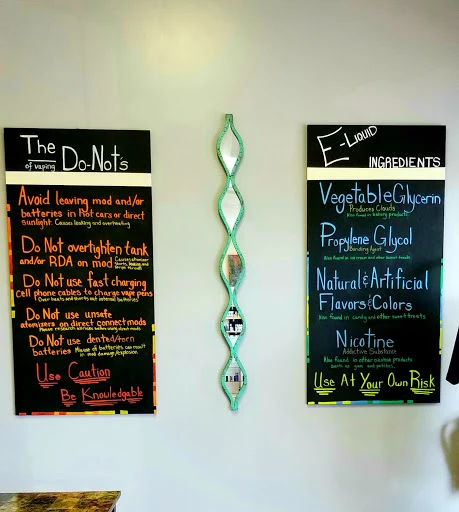 The
of vaping
Do-Not's
Avoid leaving mod and/or
batteries in Hot cars or direct
sunlight. Causes leaking and overheating
Do Not overtighten tank
and/or RDA on mod
Do Not use fast charging
cell phone cables to charge vape pens
Over heats and shorts out internal batteries
Do Not use unsafe
atomizers on direct connect mods
Do Not use dented/torn
batteries Misuse of batteries can result
in mod damage/explosion
Use Caution
Be Knowledgable
E-Liquid
INGREDIENTS
Vegetable Glycerin
Produces Clouds
Also found in bakery products
Propylene Glycol
Bonding Agent
Also found in ice cream and other sweet treats
Natural & Artificial
Flavors & Colors
Also found in candy and other sweet treats
Nicotine
Addictive Substance
Also found in other nicotine products
such as gum and patches
Use At Your Own Risk